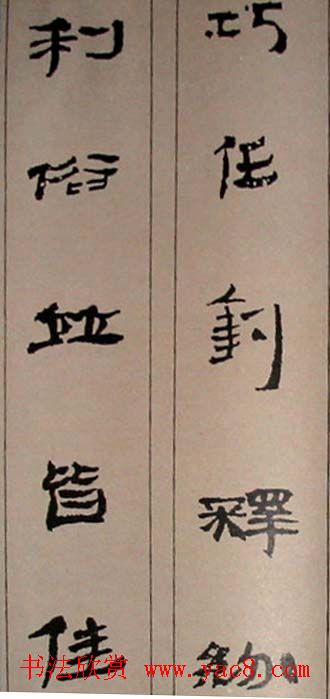 巧任釣釋紛
利俗並皆佳
书法欣赏 www.yac8.com